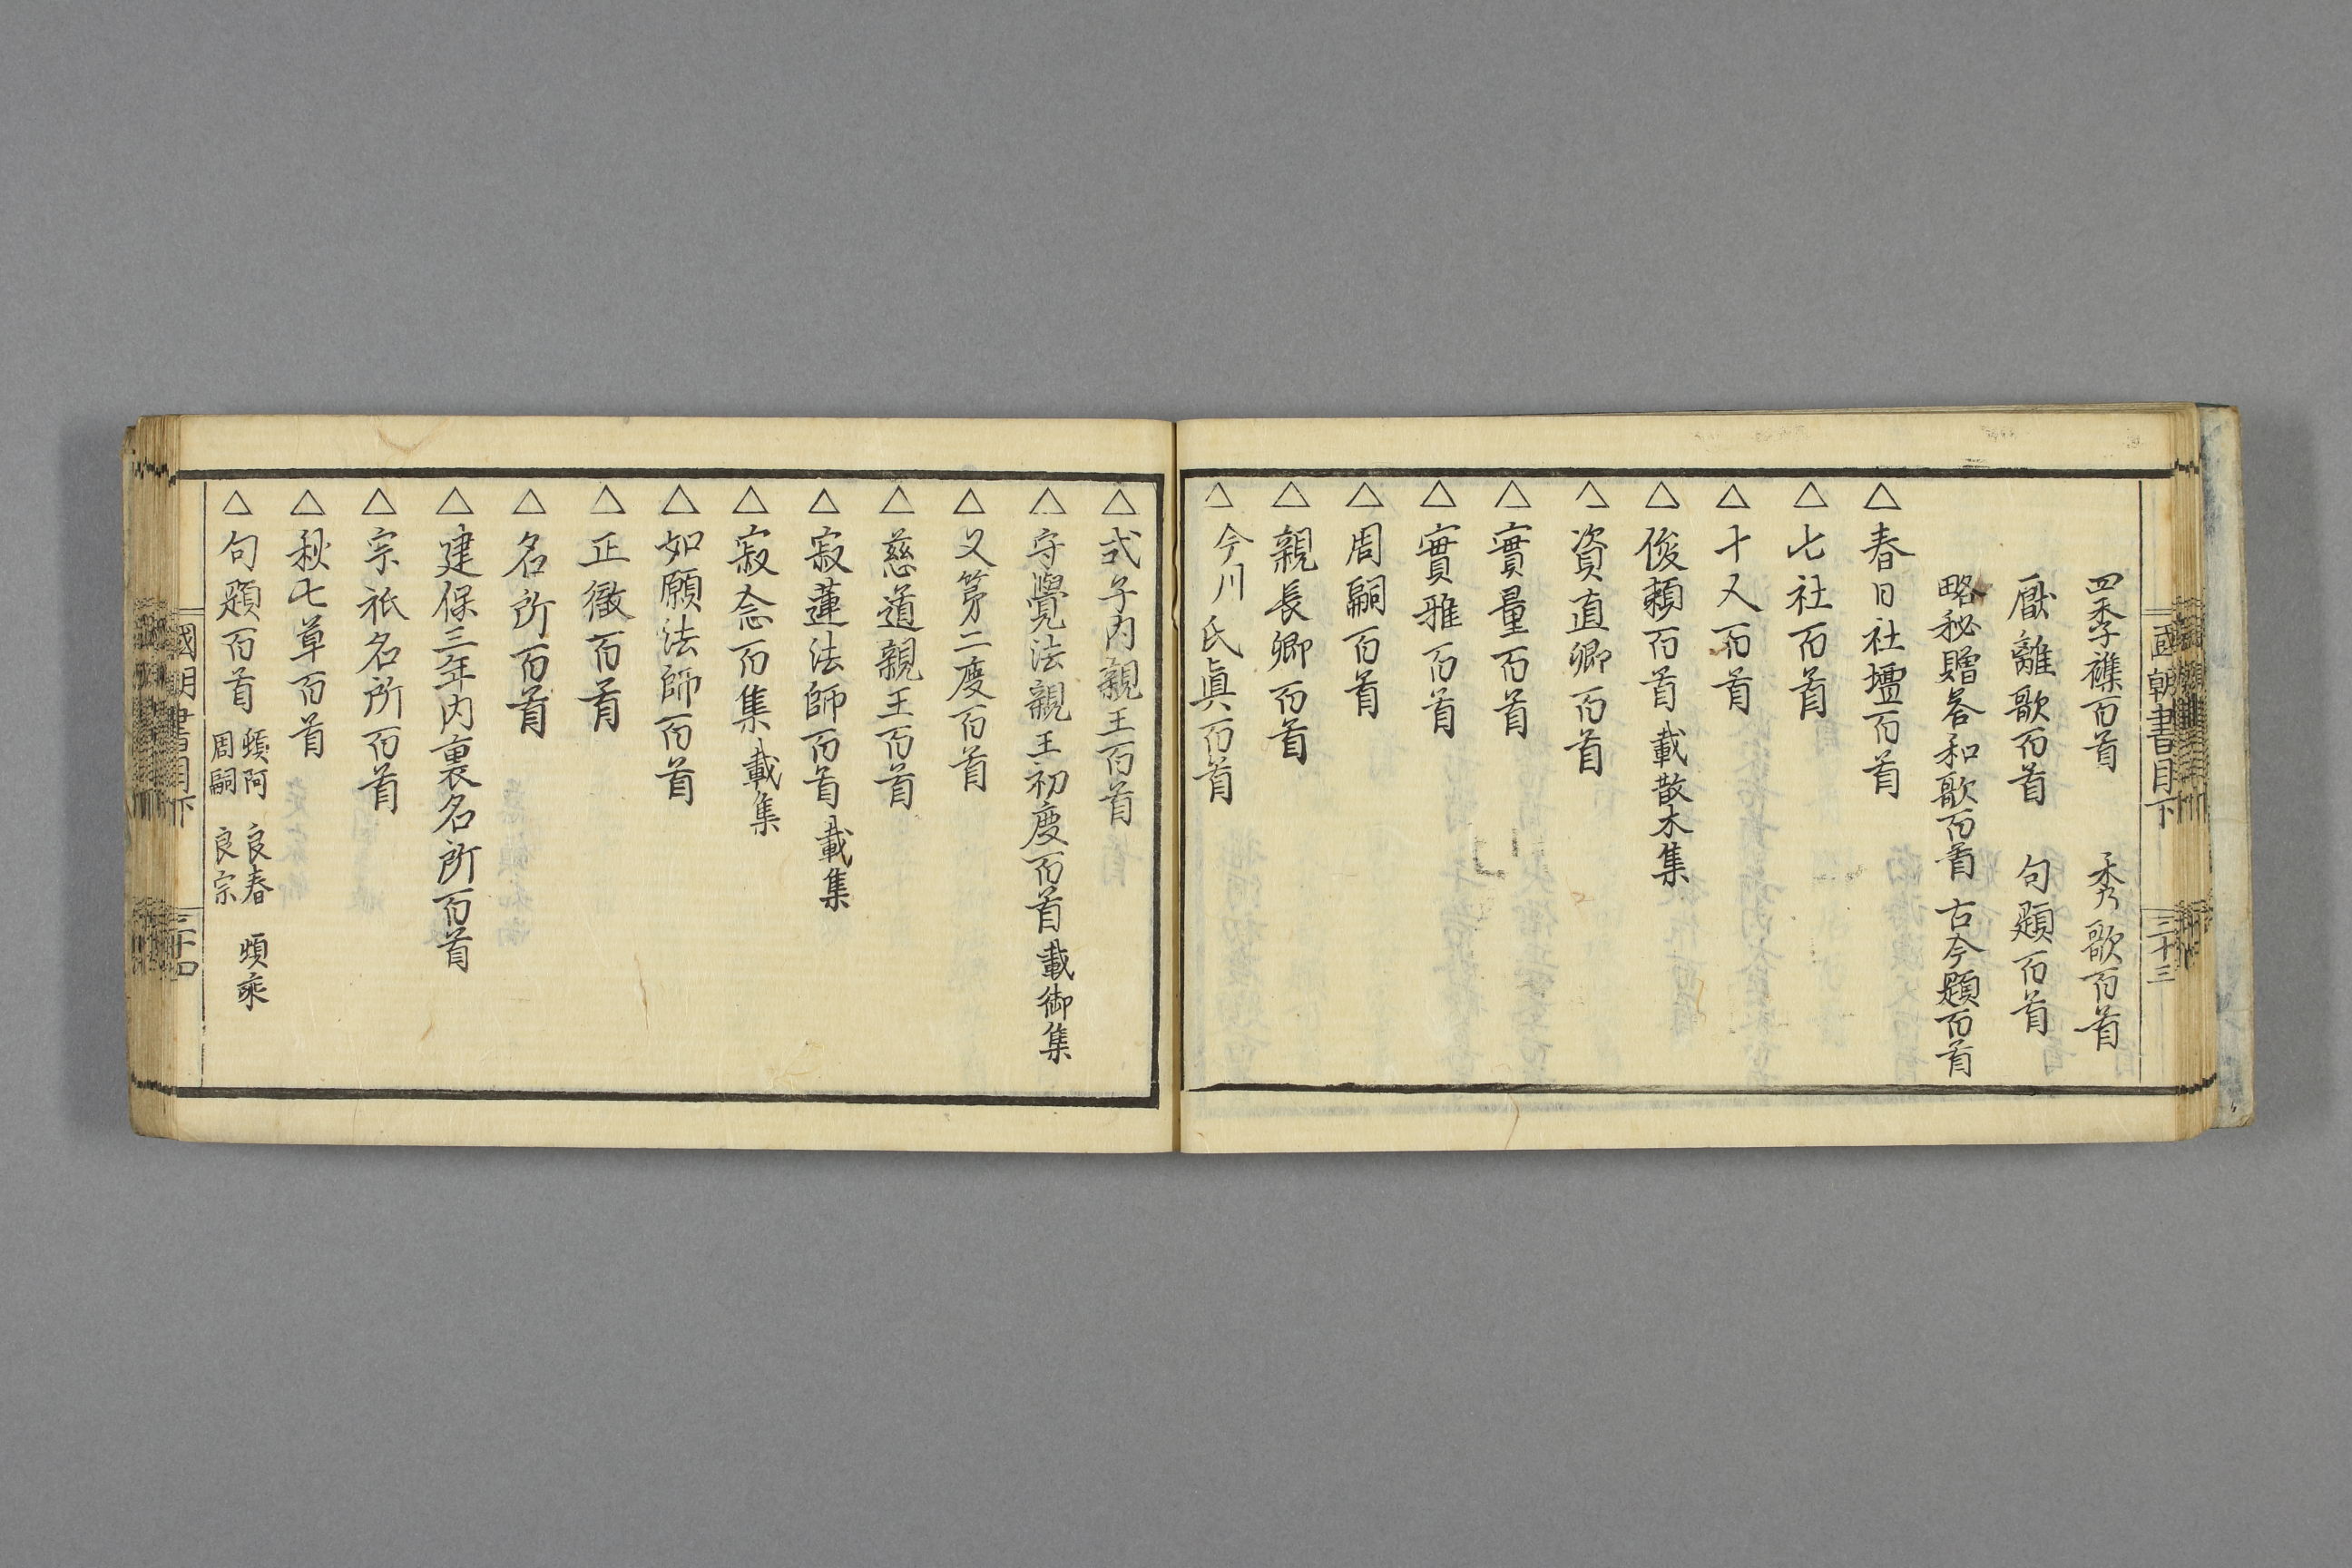 國朝書目下 三十三
四季襍百首 秀歌百首
厭離歌百首 句題百首
略秘贈答和歌百首 古今題百首
△春日社壇百首
△七社百首
△十又百首
△俊頼百首 載散木集
△資直卿百首
△實量百首
△實雅百首
△周嗣百首
△親長卿百首
△今川氏眞百首
△式子内親王百首
△守覺法親王初度百首 載御集
△又第二度百首
△慈道親王百首
△寂蓮法師百首 載集
△寂念百集 載集
△如願法師百首
△正徹百首
△名所百首
△建保三年内裏名所百首
△宗祇名所百首
△秋七草百首
△句題百首 頓阿 良春 頓乘
周嗣 良宗
國朝書目下 三十四